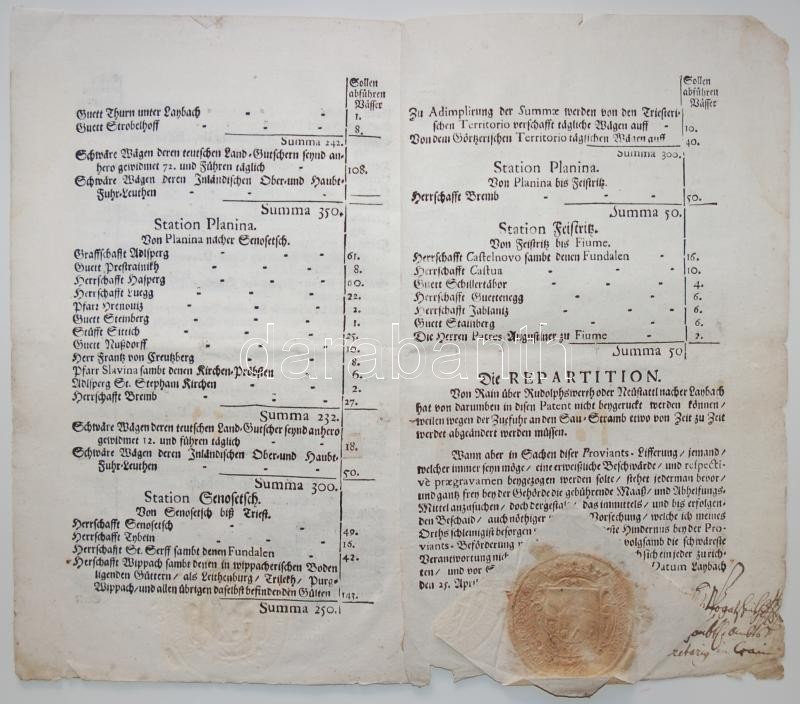 Sollen
abführen
Väffer
Guett Thurn unter Laybach - - 1.
Guett Strobelhoff - - - 8.
Summa 242.
Schwäre Wägen deren teutschen Land-Gutschern seynd an-
hero gewidmet 72. und führen täglich - 108.
Schwäre Wägen deren Inländischen Ober-und Haubt-
Fuhr-Leuthen - -
Summa 350.
Station Planina.
Von Planina nacher Senosetsch.
Graffschafft Adlsperg - - 61.
Guett Prestrainikh - - 8.
Herrschafft Hasperg - - 60.
Herrschafft Luegg - - 22.
Pfarr Hrenoviz - - 2.
Guett Steinberg - - 1.
Stüfft Sittich - - 25.
Guett Nußdorff - - 10.
Herr Frantz von Creutzberg - - 8.
Pfarr Slavina sambt denen Kirchen-Pröbsten - 6.
Adlsperg St. Stephani Kirchen - - 2.
Herrschafft Bremb - - 27.
Summa 232.
Schwäre Wägen deren teutschen Land-Gutscher seynd anhero
gewidmet 12. und führen täglich - - 18.
Schwäre Wägen deren Inländischen Ober-und Haubt-
Fuhr-Leuthen - - 50.
Summa 300.
Station Senosetsch.
Von Senosetsch biß Triest.
Herrschafft Senosetsch - - 49.
Herrschafft Tybein - - 16.
Herrschafft St. Serff sambt denen Fundalen - 42.
Herschafft Wippach sambt denen in wippacherischen Boden
ligenden Güttern/ als Leithenburg/ Trilekh/ Purg-
Wippach/ und allen übrigen daselbst befindenden Gülten 143.
Summa 250.
Sollen
abführen
Väffer
Zu Adimplirung der Summæ werden von den Triesteri-
schen Territorio verschafft tägliche Wägen auff - 10.
Von dem Görtzerischen Territorio täglichen Wägen auff 40.
Summa 300.
Station Planina.
Von Planina bis Feistritz.
Herrschafft Bremb - - 50.
Summa 50.
Station Feistritz.
Von Feistritz bis Fiume.
Herrschafft Castelnovo sambt denen Fundalen - 16.
Herrschafft Castua - - 10.
Guett Schillertabor - - 4.
Herrschafft Guettenegg - - 6.
Herrschafft Jablanitz - - 6.
Guett Stainberg - - 6.
Die Herren Patres Augustiner zu Fiume - 2.
Summa 50
darabanth
Die REPARTITION.
Von Rain über Rudolphswerth oder Neüstattl nacher Laybach
hat von darumben in disen Patent nicht beygeruckt werden können/
weilen wegen der Zufuhr an den Sau-Stramb etwo von Zeit zu Zeit
werdet abgeändert werden müssen.
Wann aber in Sachen diser Proviants-Lifferung/ jemand/
welcher immer seyn möge/ eine erweißliche Beschwärde/ und respecti-
vè prægravamen beygezogen werden solte/ stehet jederman bevor/
und gantz frey bey der Gehörde die gebührende Maaß/ und Abhelfungs-
Mittel anzusuchen/ doch dergestalt/ das immittels/ und bis erfolgen-
den Bescheid/ auch nöthiger Vorsehung/ welche ich meines
Orths schleinigist besorgen Hindernus bey der Pro-
viants-Beförderung volgsamb die schwäreste
Verantwortung sich ein jeder zu rich-
ten/ und vor Datum Laybach
den 25. April
in Crain